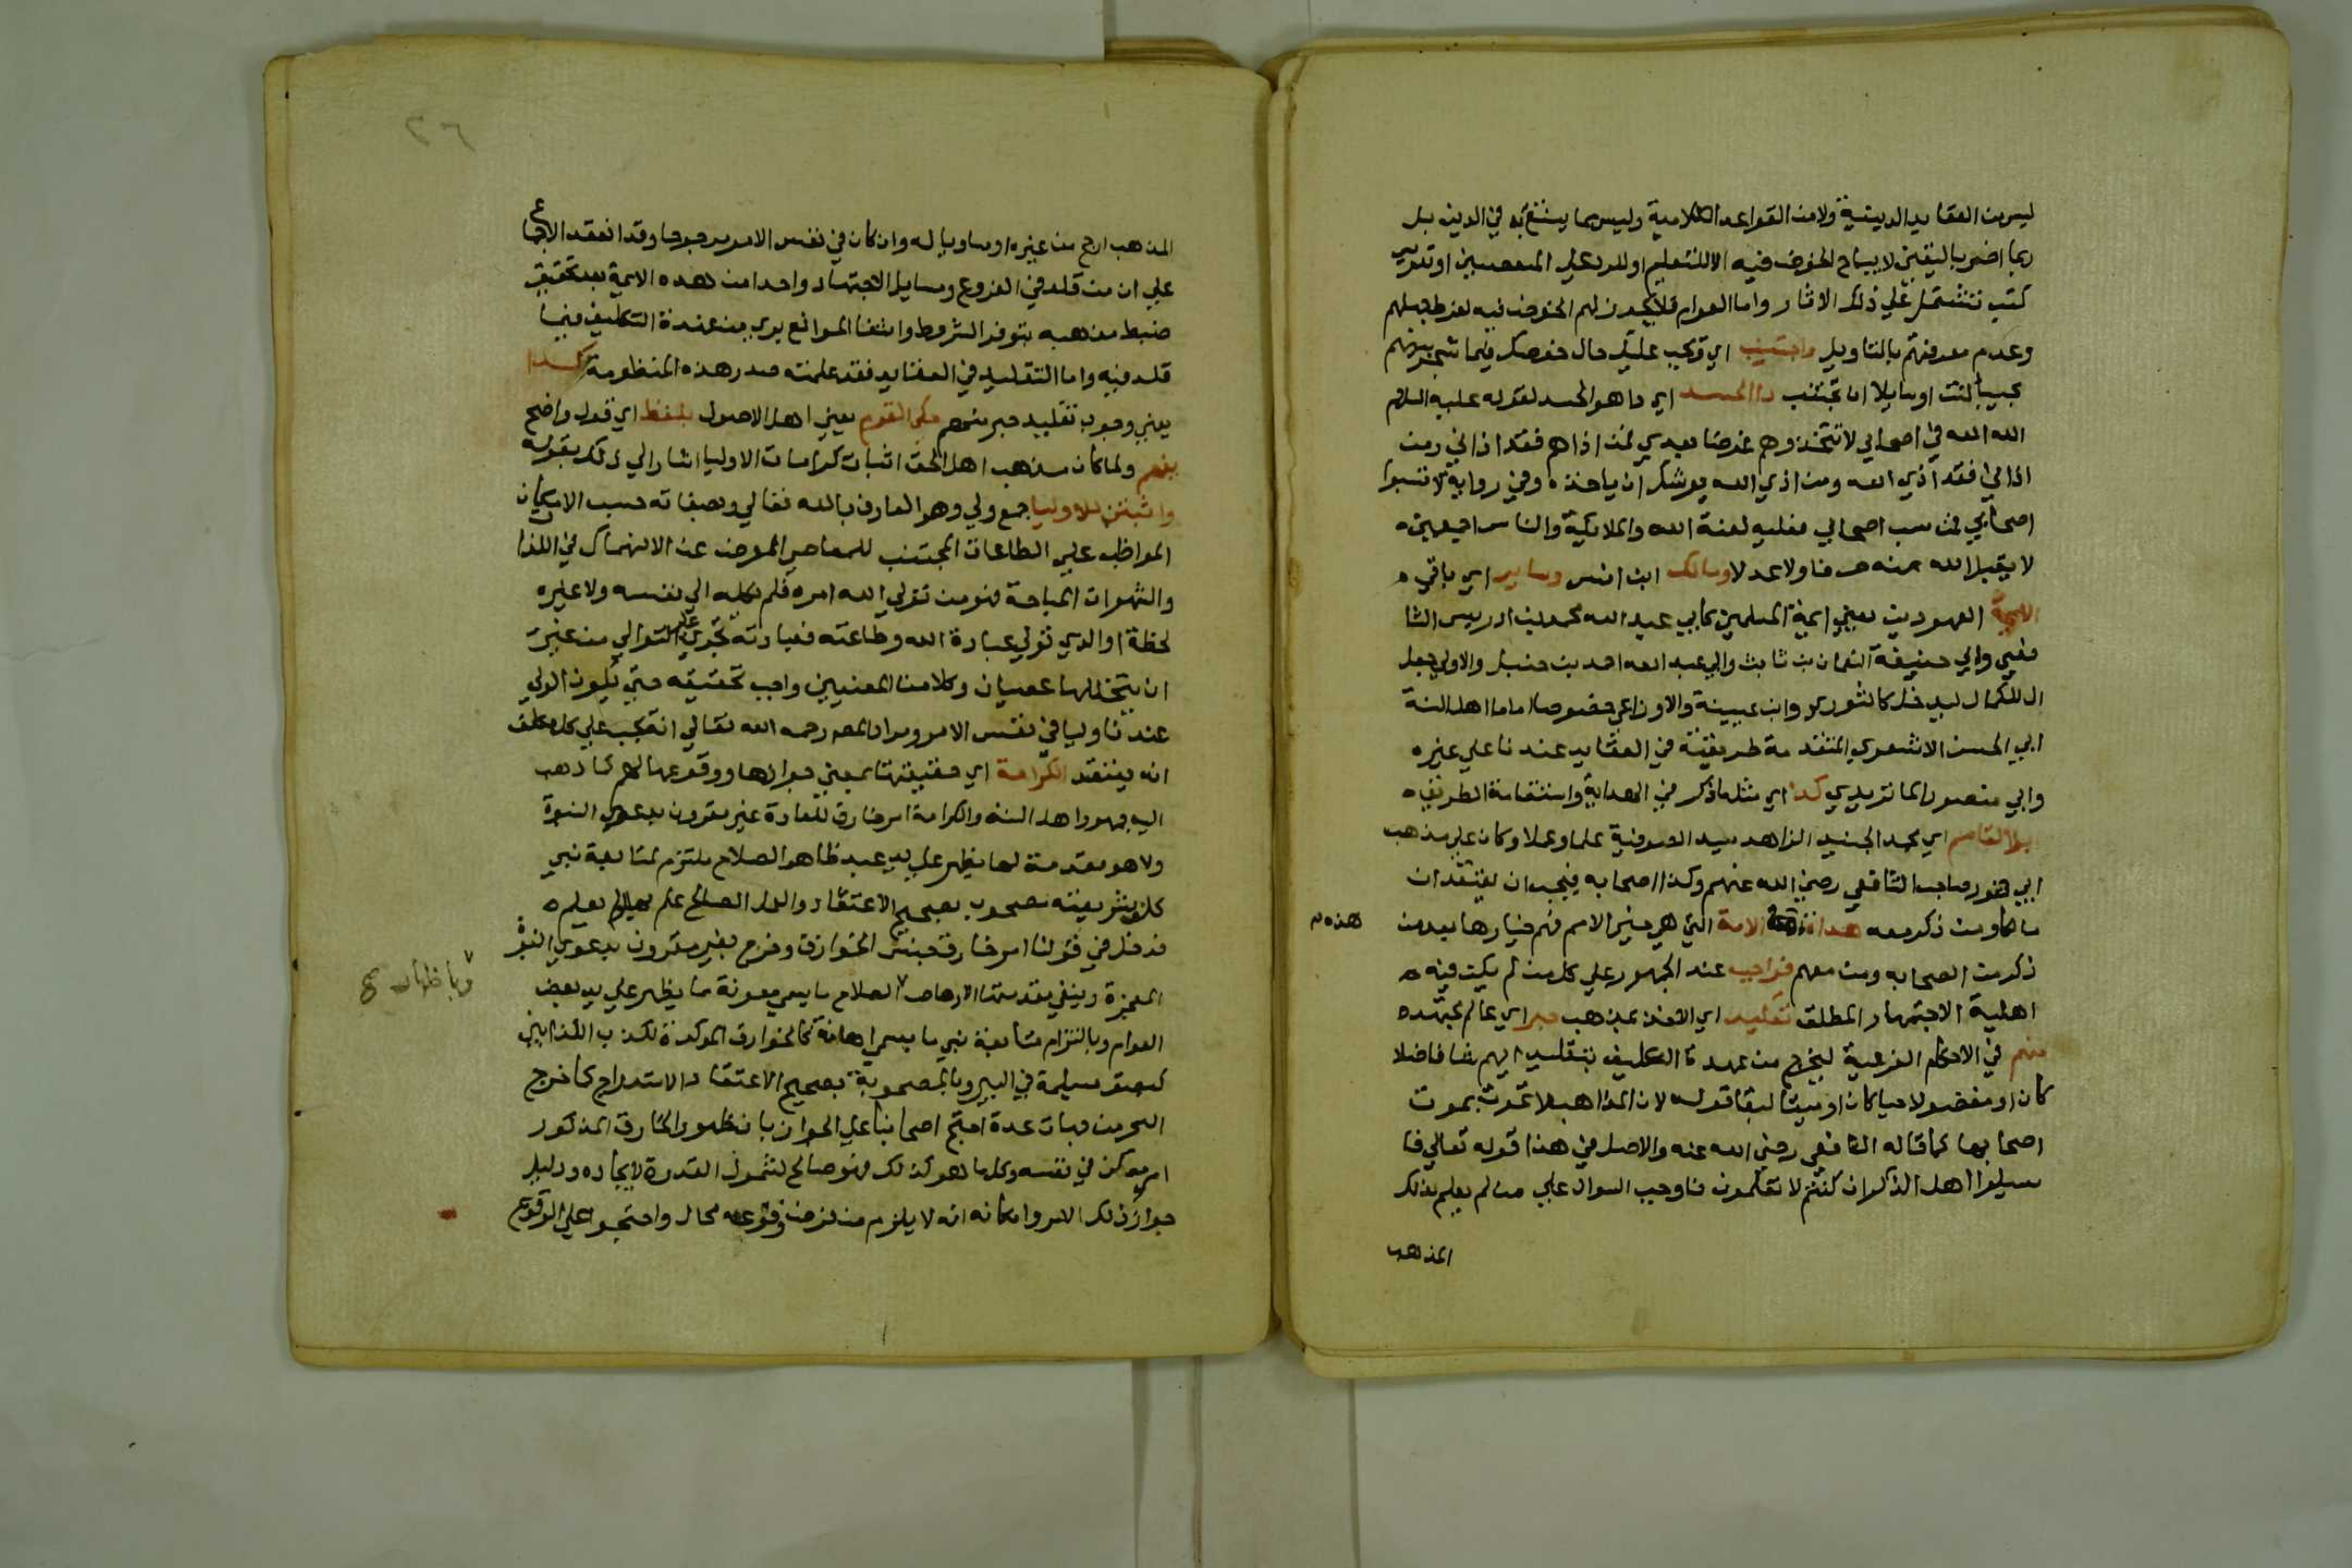 ليس من العقايد الدينية ولا من القواعد الكلامية وليس مما ينتفع به في الدين بل
ربما اضر باليقين لا يباح الخوض فيه الا للتعليم او للرد علي المتعصبين او تدريس
كتب تشتمل علي ذلك الاثار واما العوام فلا يجوز لهم الخوض فيه لفرط جهلهم
وعدم معرفتهم بالتاويل واجتنب اي ويجب عليك حال خوضك فيما شجر بينهم
مجيبا كنت او سايلا ان تجتنب داء الحسد اي داهو الحسد لقوله عليه السلام
الله الله في اصحابي لا تتخذوهم غرضا بعدي من اذاهم فقد اذاني ومن
اذاني فقد آذي الله ومن اذي الله يوشك ان ياخذه وفي رواية لا تسبوا
اصحابي فمن سب اصحابي فعليه لعنة الله والملايكة والناس اجمعين
لا يقبل الله منه صرفا ولا عدلا ومالك ابن انس وساير اي باقي
الايمة المعهودين يعني ايمة المسلمين كابي عبد الله محمد بن ادريس الشا
فعي وابي حنيفة النعمان بن ثابت وابي عبد الله احمد بن حنبل والاولي جعل
ال للكمال ليدخل كالثوري وابن عيينة والاوزاعي خصوصا اماما اهل السنة
ابي الحسن الاشعري المتقدمة طريقته في العقايد عندنا علي غيره
وابي منصور الماتريدي كذا اي مثل ما ذكر في الهداية واستقامة الطريقة
ابو القاسم اي محمد الجنيد الزاهد سيد الصوفية علما وعملا وكان علي مذهب
ابي ثور صاحب الشافعي رضي الله عنهم وكذا اصحابه فيجب ان يعتقد ان
مالكا ومن ذكر معه هداة هذه الامة التي هي خير الامم فهم خيارها بعد من
هذه
ذكر من الصحابه ومن معهم فواجب عند الجمهور علي كل من لم يكن فيه
اهلية الاجتهاد المطلق تقليد اي الاخذ بمذهب حبر اي عالم مجتهد
منهم في الاحكام الفرعية ليخرج من عهدة التكليف بتقليد ايهم شا فاضلا
كان او مفضولا حيا كان او ميتا لبقا قوله لان المذاهب لا تموت بموت
اصحابها كما قاله الشافعي رضي الله عنه والاصل في هذا قوله تعالي فا
سيلوا اهل الذكر ان كنتم لا تعلمون فاوجب السوال علي من لم يعلم بذلك
المذهب
٢٦
المذهب ارجح من غيره او مساويا له وان كان في نفس الامر مرجوحا وقد انعقد الاجماع
علي ان من قلد في الفروع ومسايل الاجتهاد واحدا من هذه الايمة بعد تحقيق
ضبط مذهبه بتوفر الشروط وانتفا الموانع بري من عهدة التكليف فيما
قلد فيه واما التقليد في العقايد فقد علمته صدر هذه المنظومة كذا
يعني وجوب تقليد حبر منهم حكي القوم يعني اهل الاصول بلفظ اي قول واضح
يفهم ولما كان مذهب اهل الحق اثبات كرامات الاوليا اشار الي ذلك بقوله
واثبتن للاوليا جمع ولي وهو العارف بالله تعالي وصفاته حسب الامكان
المواظب علي الطاعات المجتنب للمعاصي المعرض عن الانهماك في اللذات
والشهوات المباحة فهو من تولي الله امره فلم يكله الي نفسه ولا غيره
لحظة او الذي تولي عبادة الله وطاعته فعبادته تجري علي التوالي من غير
ان يتخللها عصيان وكلا من المعنيين واجب تحقيقه حتي يكون الولي
عندنا وليا في نفس الامر ومراد المص رحمه الله تعالي انه يجب علي كل مكلف
انه يعتقد الكرامة اي حقيقتها بمعني جوازها ووقوعها لهم كما ذهب
اليه جمهور اهل السنه والكرامة امر خارق للعادة غير مقرون بدعوي النبوة
ولا هو مقدمة لها يظهر علي يد عبد ظاهر الصلاح ملتزم لمتابعة نبي
كلف بشريعته مصحوب بصحيح الاعتقاد والعمل الصالح علم بها او لم يعلم
فدخل في قولنا امر خارق جنس الخوارق وخرج بغير مقرون بدعوي النبوة
المعجزة وبنفي مقدمتها الارهاص الصلاح ما يسمي معونة مما يظهر علي يد بعض
وبا ظهار صح
العوام وبالتزام متابعة نبي ما يسمي اهانة كالخوارق الموكدة لكذب الكذابين
كبصق مسيلمة في البير وبالمصحوبية بصحيح الاعتقاد الاستدراج كما خرج
السحر من جهات عدة احتج اصحابنا علي الجواز بان ظهور الخارق المذكور
امر ممكن في نفسه وكل ما هو كذلك فهو صالح لشمول القدرة لايجاده ودليل
جواز ذلك الامر وامكانه انه لا يلزم من فرض وقوعه محال واحتجوا علي الوقوع